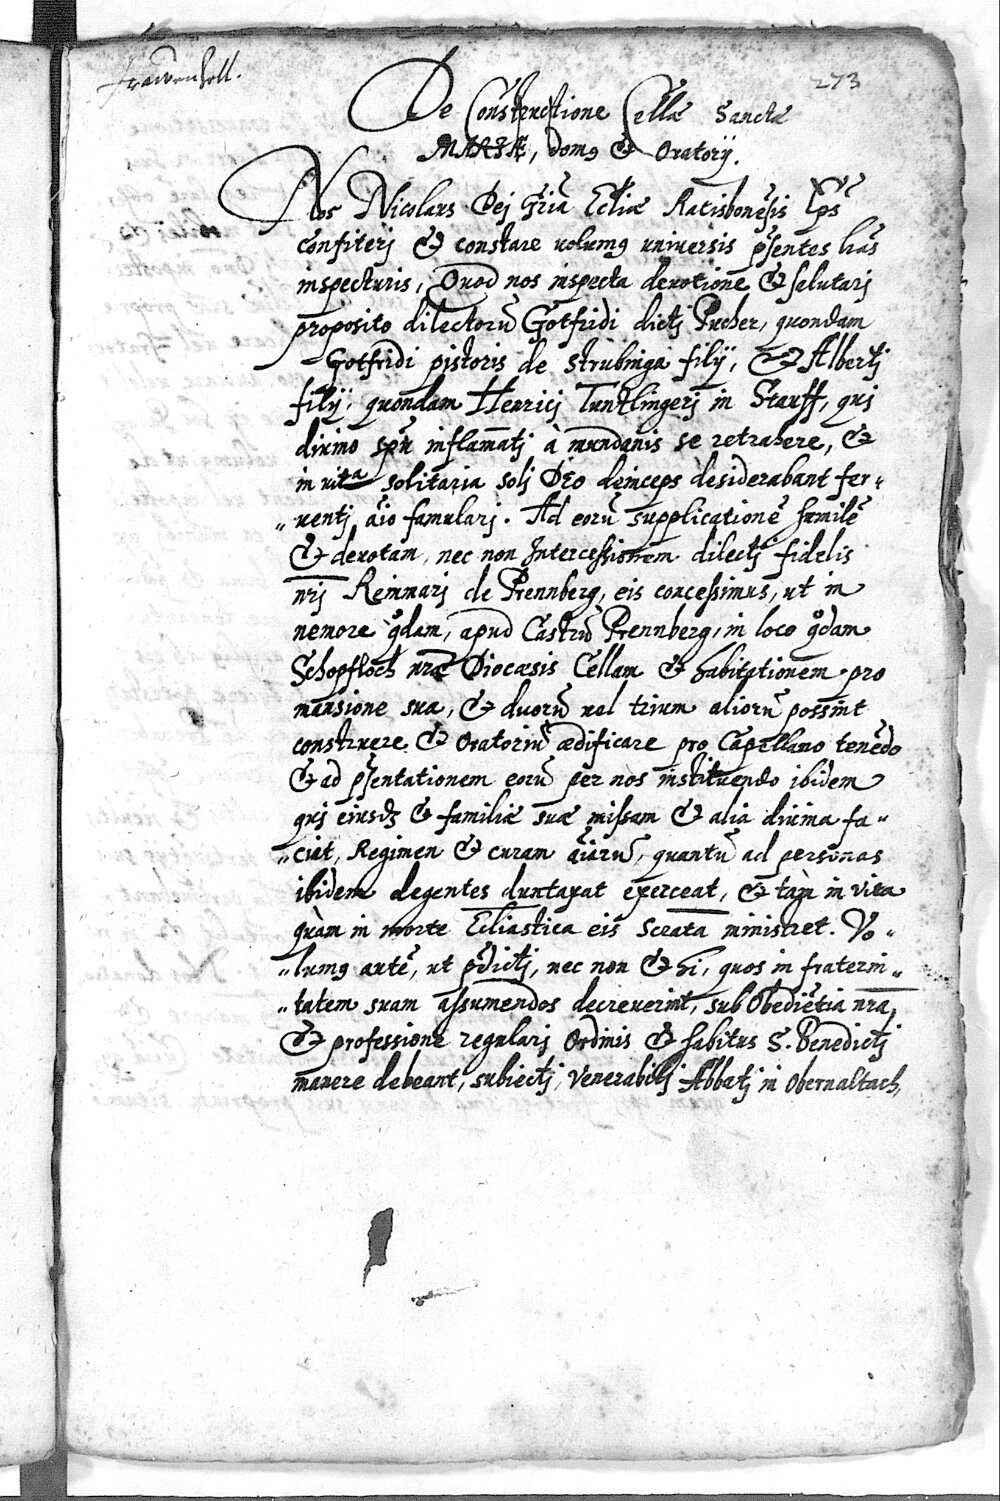 Frawenzell.
273
De Constructione Cellæ Sanctæ
MARIÆ, domg & Oratorij.
Nos Nicolaus Dej Gr̄ia Ecl̄iæ Ratisbonēsis Ep̄s
confiterj & constare volumg universis p̄sentes has
inspecturis, Quod nos inspecta devotione & salutarj
proposito dilectorū Gotfridi dictj Pucher, quondam
Gotfridi pistoris de Strubinga filij, & Albertj
filij, quondam Henricj Tuntlingerj in Stauff, quj
divino sp̄u inflam̄atj à mundanis se retrahere, &
in vita solitaria solj Deo deinceps desiderabant fer„
„ventj āio famularj. Ad eorū supplicationē humilē
& devotam, nec non Intercessionem dilectj fidelis
nr̄j Reimarj de Prennberg, eis concessimus, ut in
nemore qdam, apud Castrū Prennberg, in loco qdam
Schopfloch nr̄æ Diocæsis Cellam & habitationem pro
mansione sua, & duorū vel trium aliorū possint
construere & Oratoriū ædificare pro Capellano tenēdo
& ad p̄sentationem eorū per nos instituendo ibidem
quj eiusdꝫ & familiæ suæ missam & alia divina fa„
„ciat, Regimen & curam āiarū, quantū ad personas
ibidem degentes duntaxat exerceat, & tàm in vita
quàm in morte Ecl̄iastica eis Sc̄ata ministret. Vo„
„lumg autē, ut p̄dictj, nec non & hi, quos in fraterni„
„tatem suam assumendos decreverint, sub Obediētia nr̄a,
& professione regularj Ordinis & habitus S. Benedictj
manere debeant, subiectj, Venerabilj Abbatj in Obernaltach,